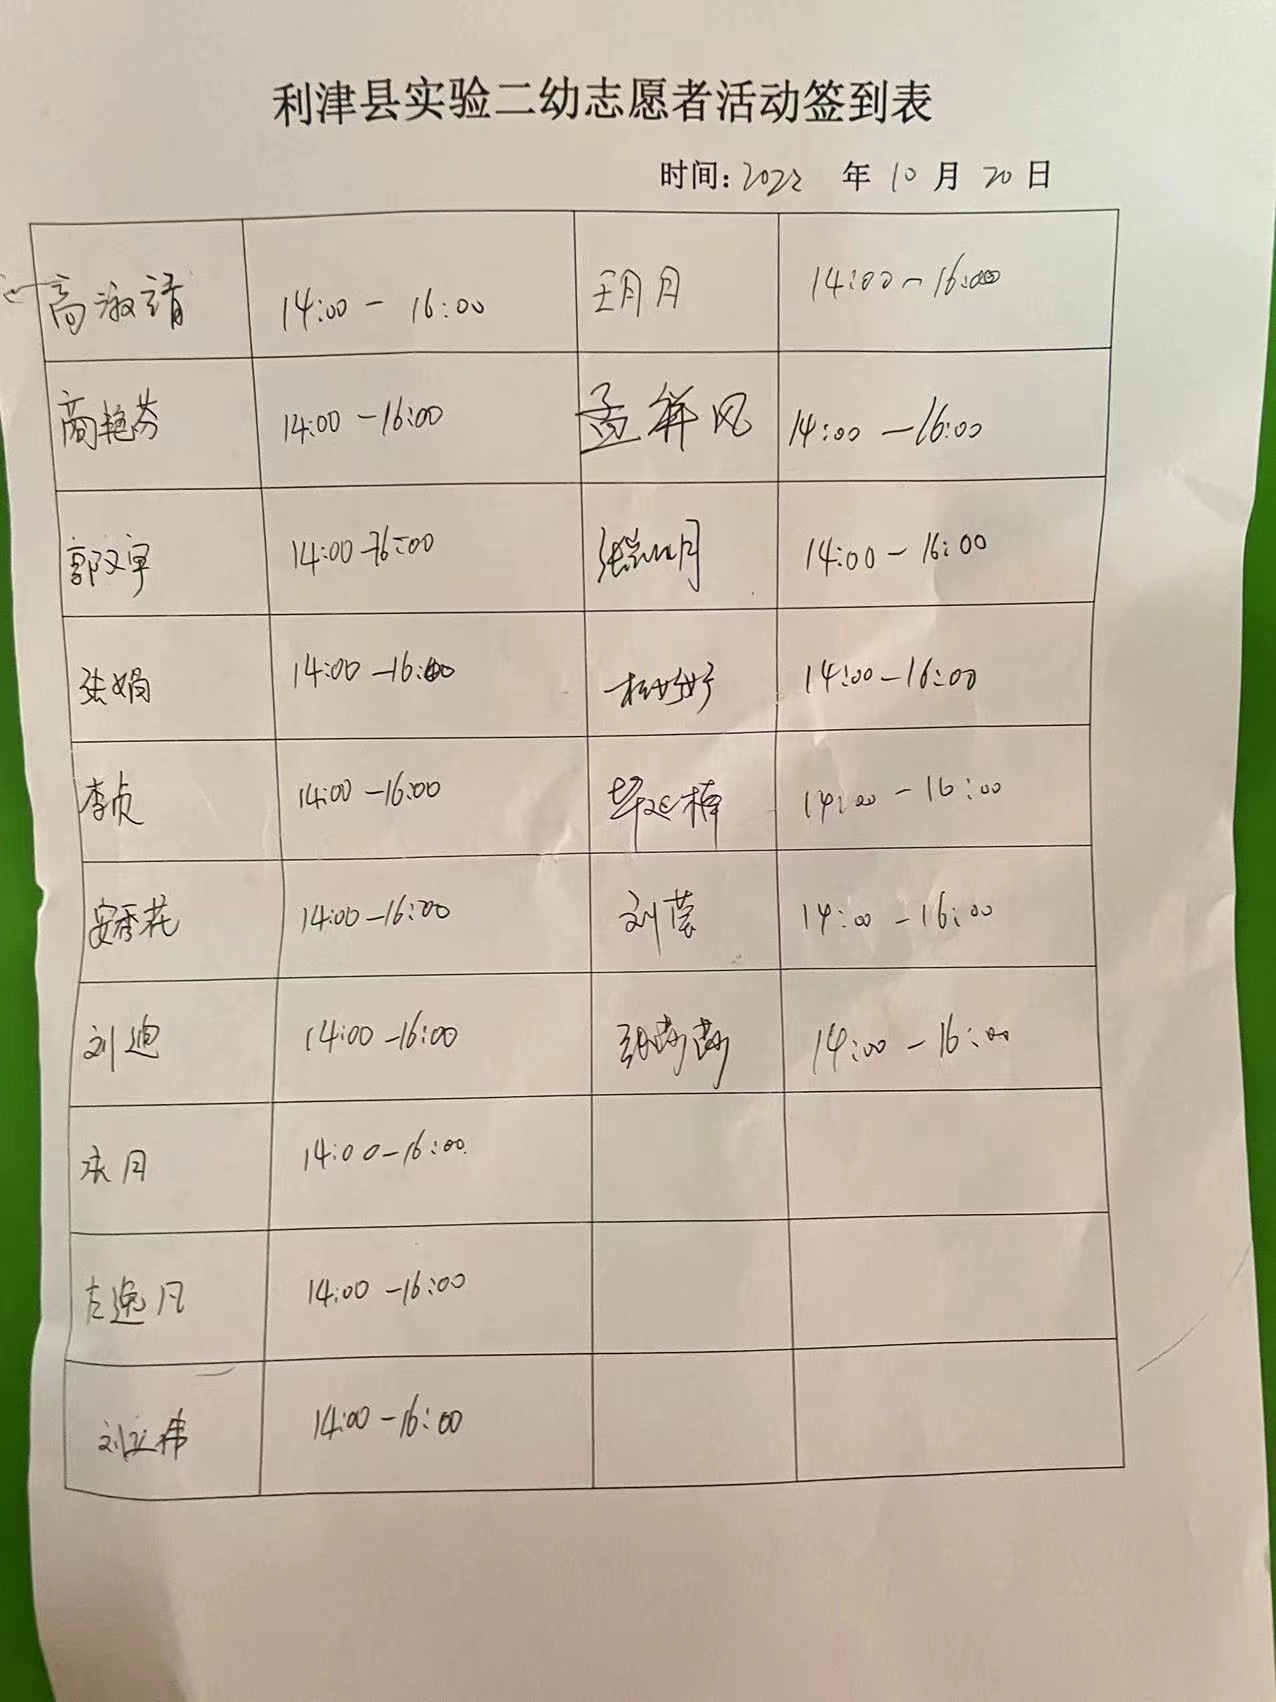 利津县实验二幼志愿者活动签到表
时间: 2022 年 10 月 20 日
高淑靖 14:00 - 16:00 王月月 14:00 ~ 16:00
商艳芬 14:00 - 16:00 孟祥风 14:00 - 16:00
郭文宇 14:00 - 16:00 月 14:00 - 16:00
张娟 14:00 - 16:00 14:00 - 16:00
李贞 14:00 - 16:00 毕延楠 14:00 - 16:00
安秀花 14:00 - 16:00 刘芸 14:00 - 16:00
刘迪 14:00 - 16:00 14:00 - 16:00
月 14:00 - 16:00
左逸凡 14:00 - 16:00
刘立伟 14:00 - 16:00